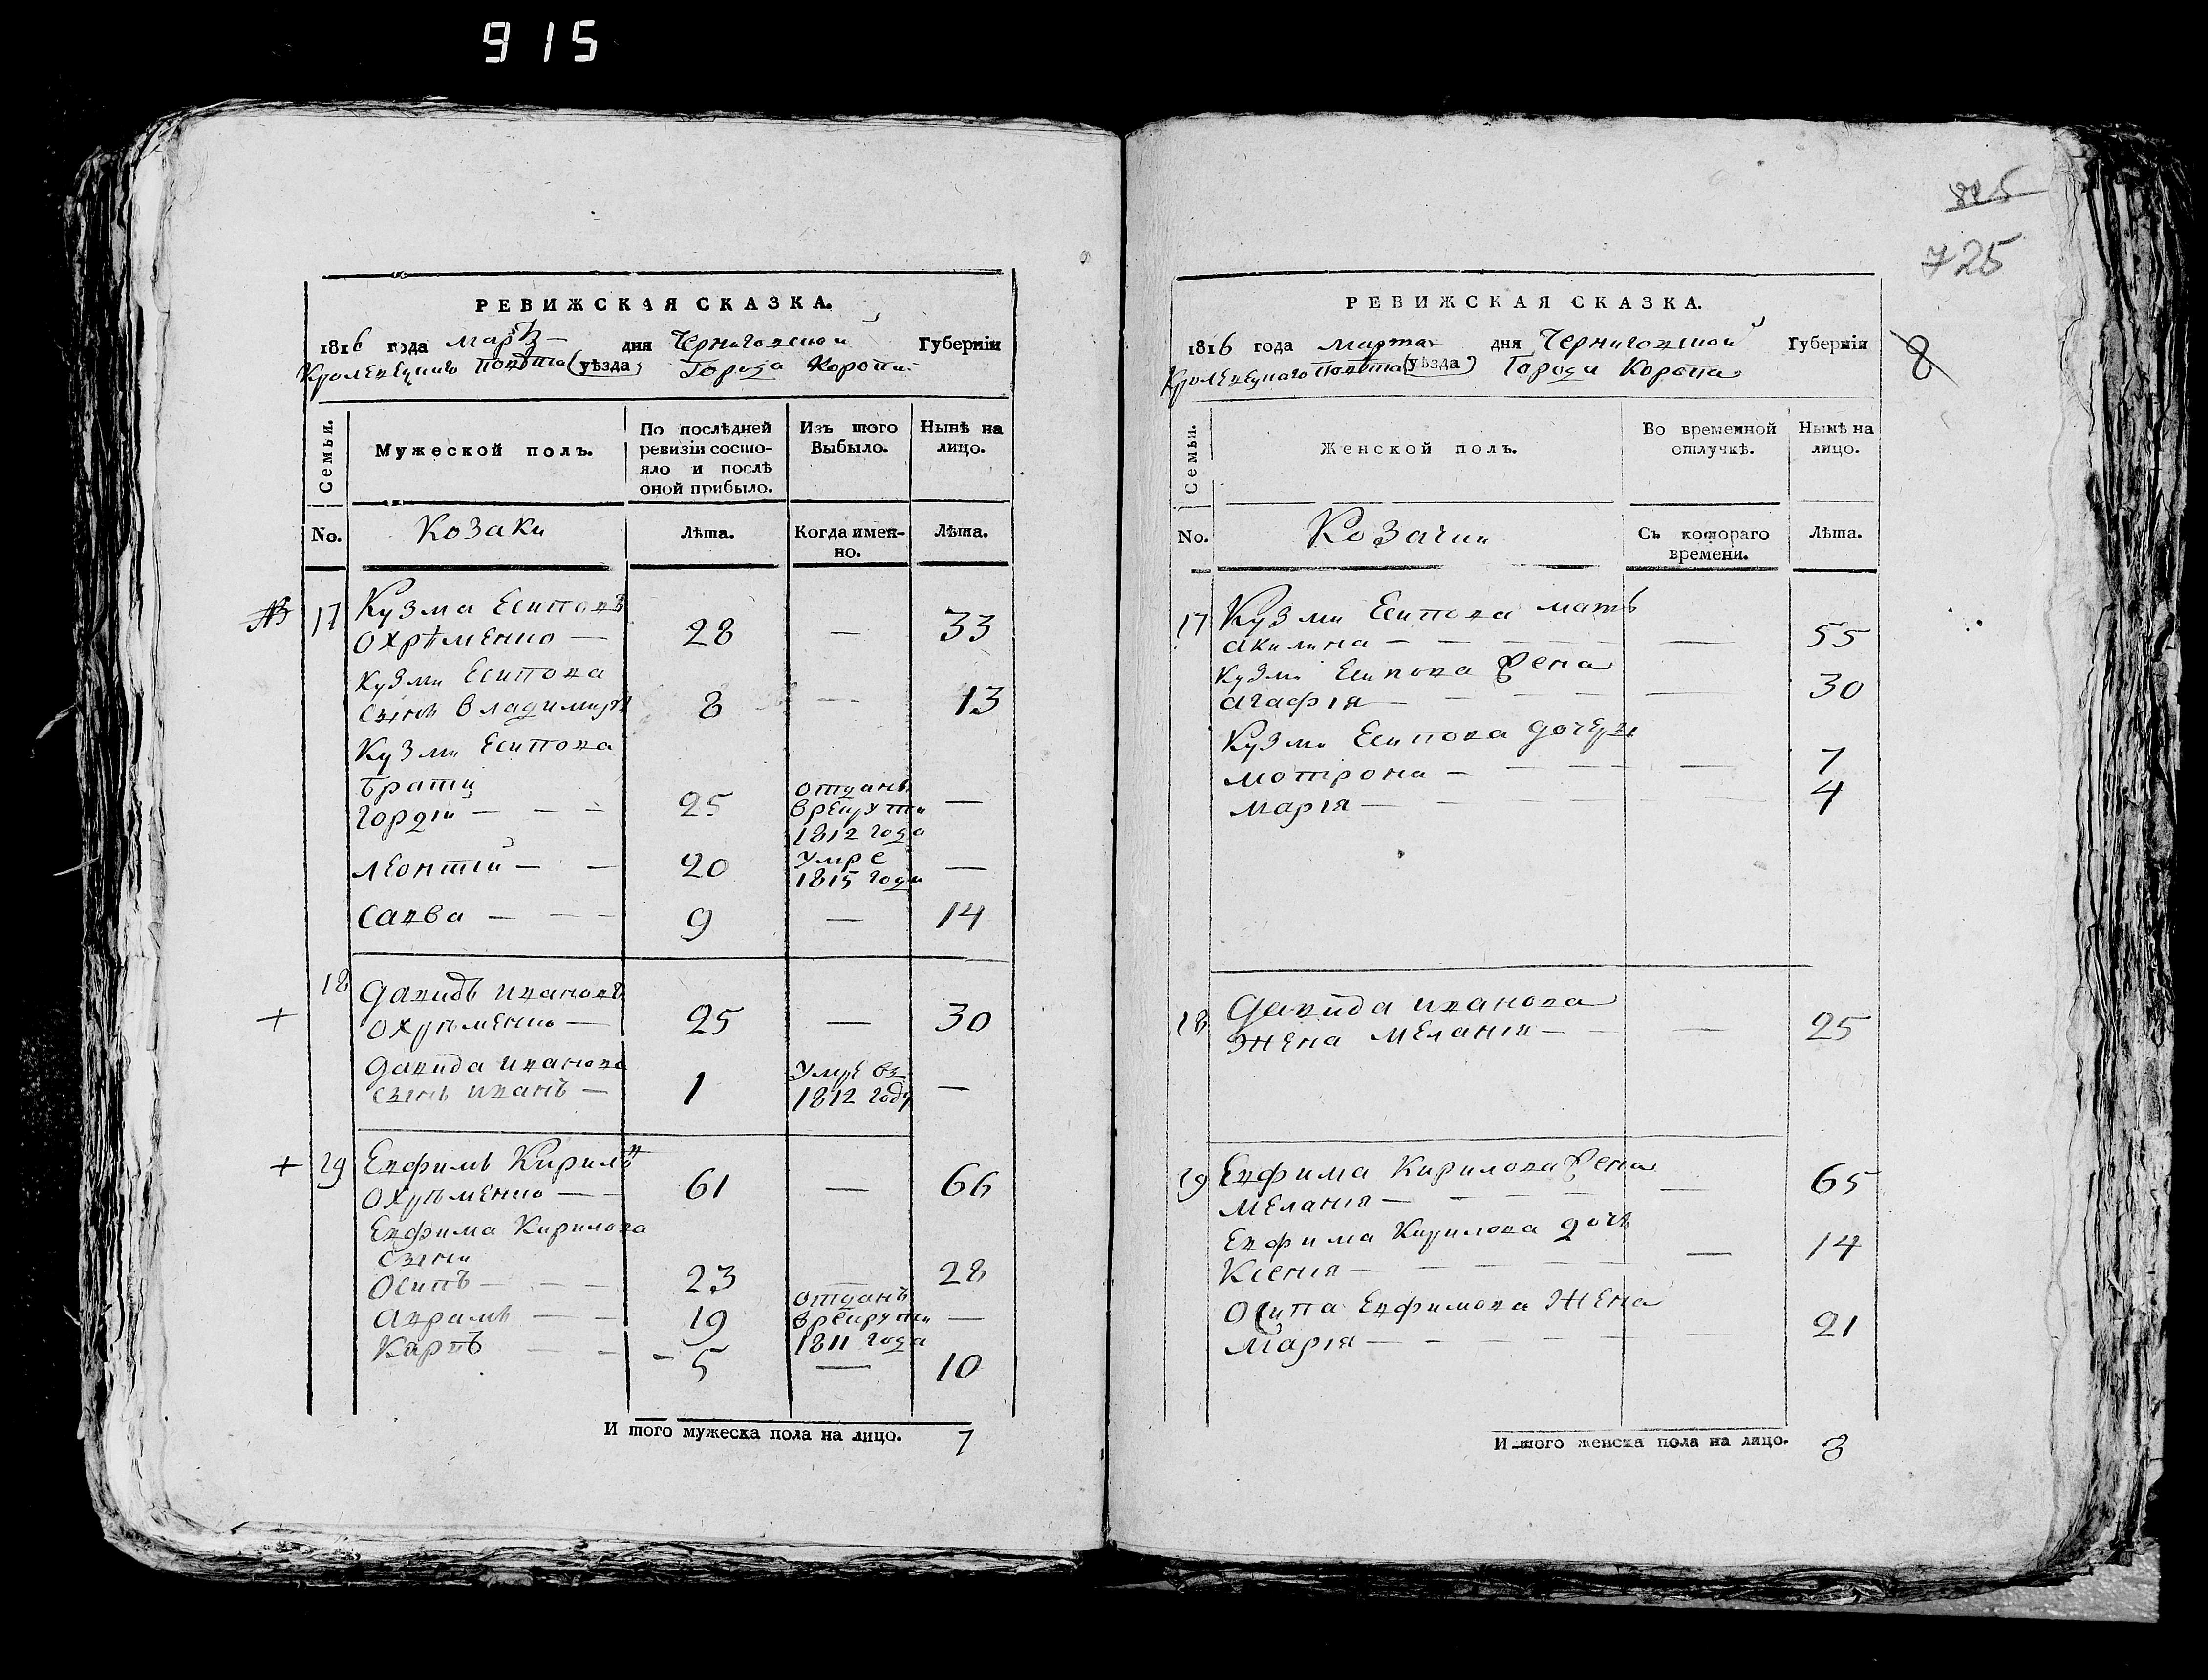 915
РЕВИЖСКАЯ СКАЗКА.
1816 года мар дня Черниговской Губернїи
Кролевецкаго Повѣта (уѣзда) Города Коропа
Семьи.
Мужеской полъ.
По послѣдней ревизїи состо-
яло и послѣ
оной прибыло.
Изъ того
Выбыло.
Нынѣ на
лицо.
No.
Козаки
Лѣта.
Когда имен-
но.
Лѣта.
17 Кузма Есиповъ
Охрѣменко — 28 — 33
Кузми Есипова
сынъ Владимиръ 8 — 13
Кузми Есипова
брати
Гордій — — — 25 отданъ в рекруты 1812 года —
Леонтій — — 20 Умре 1815 года —
Савва — — — 9 — 14
18 Давидъ Ивановъ
Охрѣменко — 25 — 30
Давида Иванова
сынъ Иванъ — 1 Умре въ 1812 году —
+ 19 Евфимъ Кирил
Охрѣменко — — 61 — 66
Евфима Кирилова
сыни
Осипъ — — — 23 — 28
Аврамъ — — 19 отданъ в рекруты 1811 года —
Карпъ — — 5 — 10
И того мужеска пола на лицо. 7
825
725
8
РЕВИЖСКАЯ СКАЗКА.
1816 года марта дня Черниговской Губернїи
Кролевецкаго Повѣта (уѣзда) Города Коропа
Семьи.
Женской полъ.
Во временной
отлучкѣ.
Нынѣ на
лицо.
No.
Козачки
Съ котораго
времени.
Лѣта.
17 Кузми Есипова мать
Акилина — — — — — 55
Кузми Есипова жена
Агафія — — — — — 30
Кузми Есипова дочери
Мотрона — — — — — 7
Марія — — — — — 4
18 Давида Иванова
жена Меланія — — — 25
19 Евфима Кирилова жена
Меланія — — — — — 65
Евфима Кирилова дочь
Ксенія — — — — — 14
Осипа Евфимова жена
Марія — — — — — 21
И того женска пола на лицо. 8